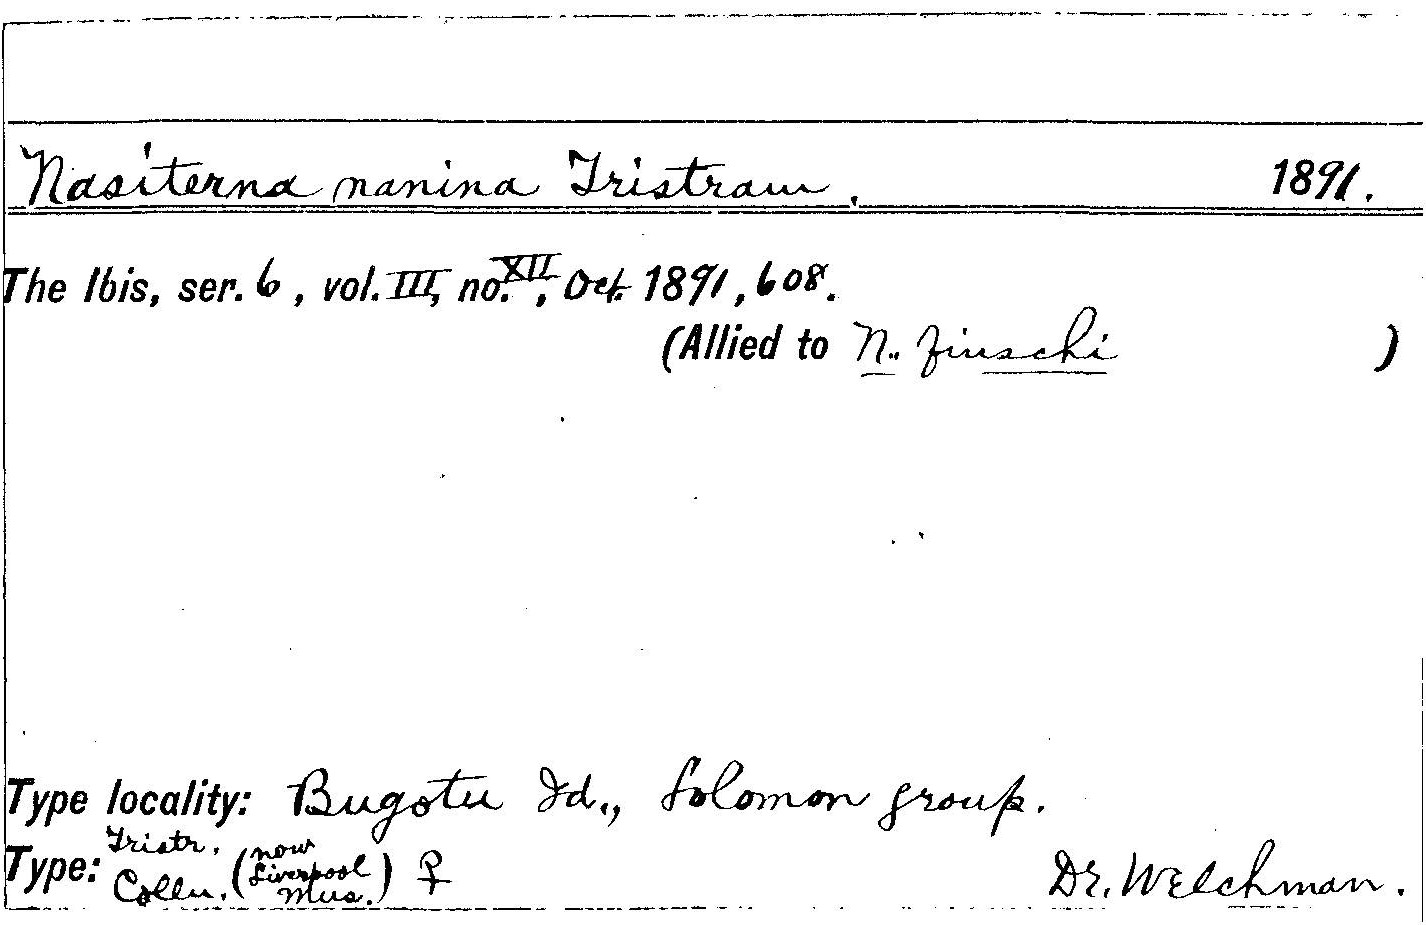 Nasiterna nanina Tristram. 1891.
The Ibis, ser. 6, vol. III, no. XII, Oct. 1891, 608.
(Allied to N. finschi )
Type locality: Bugotu Id., Solomon group.
Type: Tristr. Colln. (now Liverpool Mus.) ♀ Dr. Welchman.